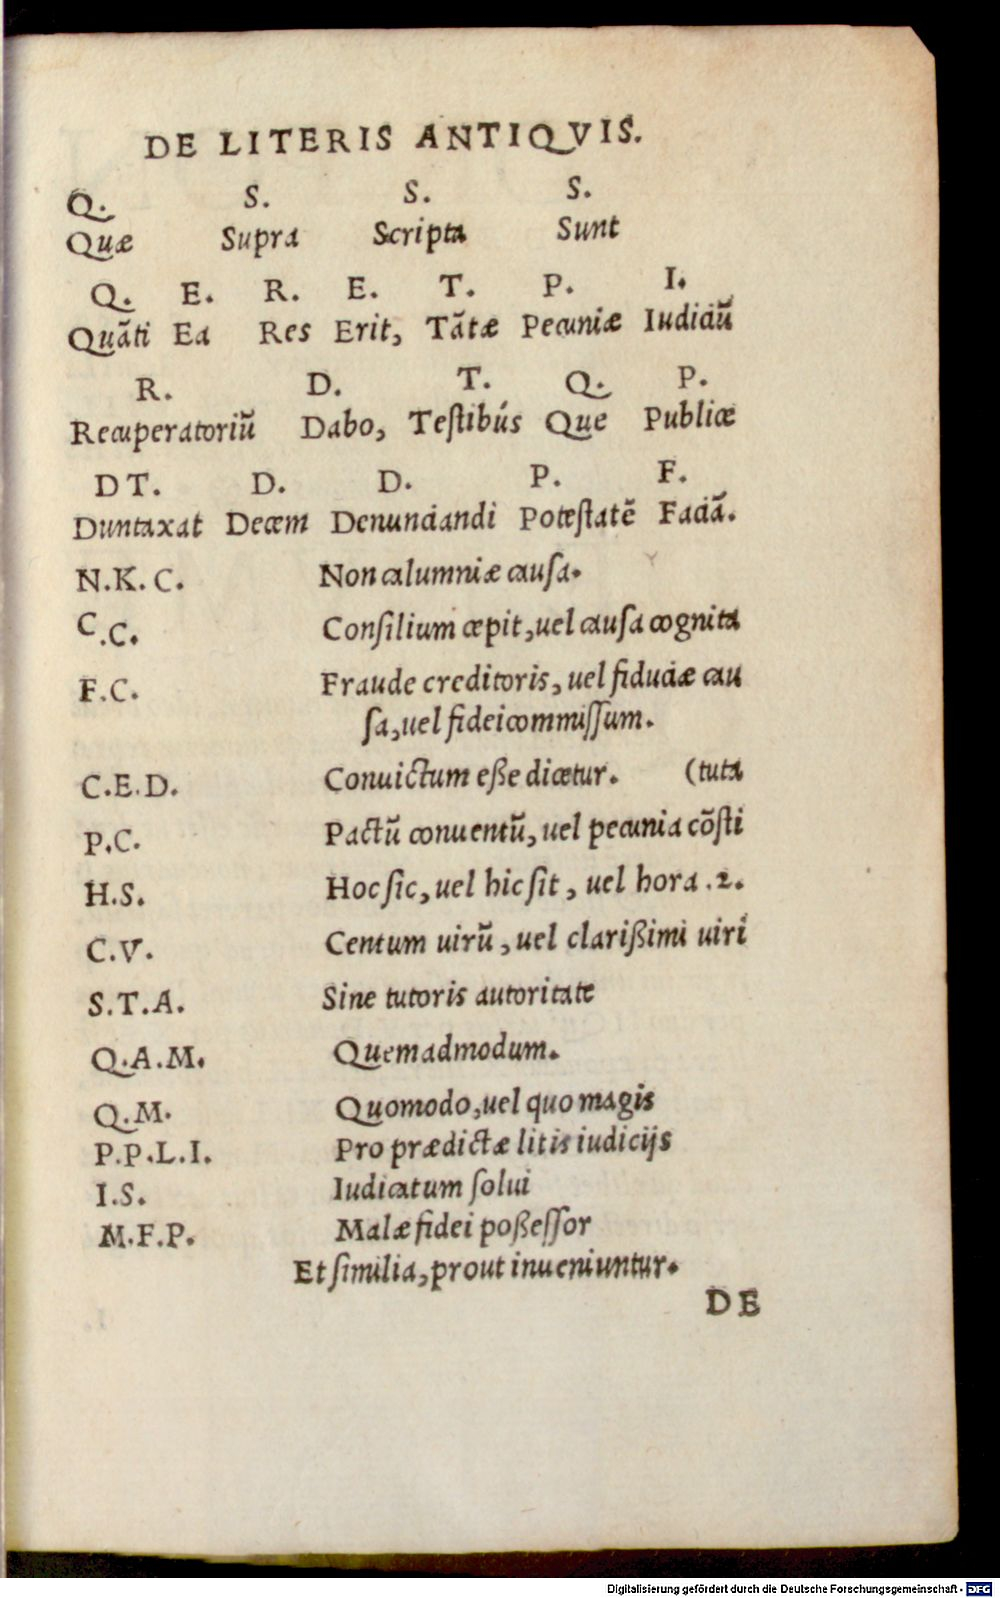 DE LITERIS ANTIQVIS.
Q. S. S. S.
Quæ Supra Scripta Sunt
Q. E. R. E. T. P. I.
Quãti Ea Res Erit, Tãtæ Pecuniæ Iudiciũ
R. D. T. Q. P.
Recuperatoriũ Dabo, Teſtibús Que Publicæ
DT. D. D. P. F.
Duntaxat Decem Denunciandi Poteſtatẽ Faciã.
N.K.C. Non calumniæ cauſa.
C.C. Conſilium cœpit, uel cauſa cognita
F.C. Fraude creditoris, uel fiduciæ cau
ſa, uel fideicommiſſum.
C.E.D. Conuictum eße dicetur. (tuta
P.C. Pactũ conuentũ, uel pecunia cõſti
H.S. Hoc ſic, uel hic ſit, uel hora .2.
C.V. Centum uirũ, uel clarißimi uiri
S.T.A. Sine tutoris autoritate
Q.A.M. Quemadmodum.
Q.M. Quomodo, uel quo magis
P.P.L.I. Pro prædictæ litis iudicijs
I.S. Iudicatum ſolui
M.F.P. Malæ fidei poßeſſor
Et ſimilia, prout inueniuntur.
DE
Digitalisierung gefördert durch die Deutsche Forschungsgemeinschaft - DFG